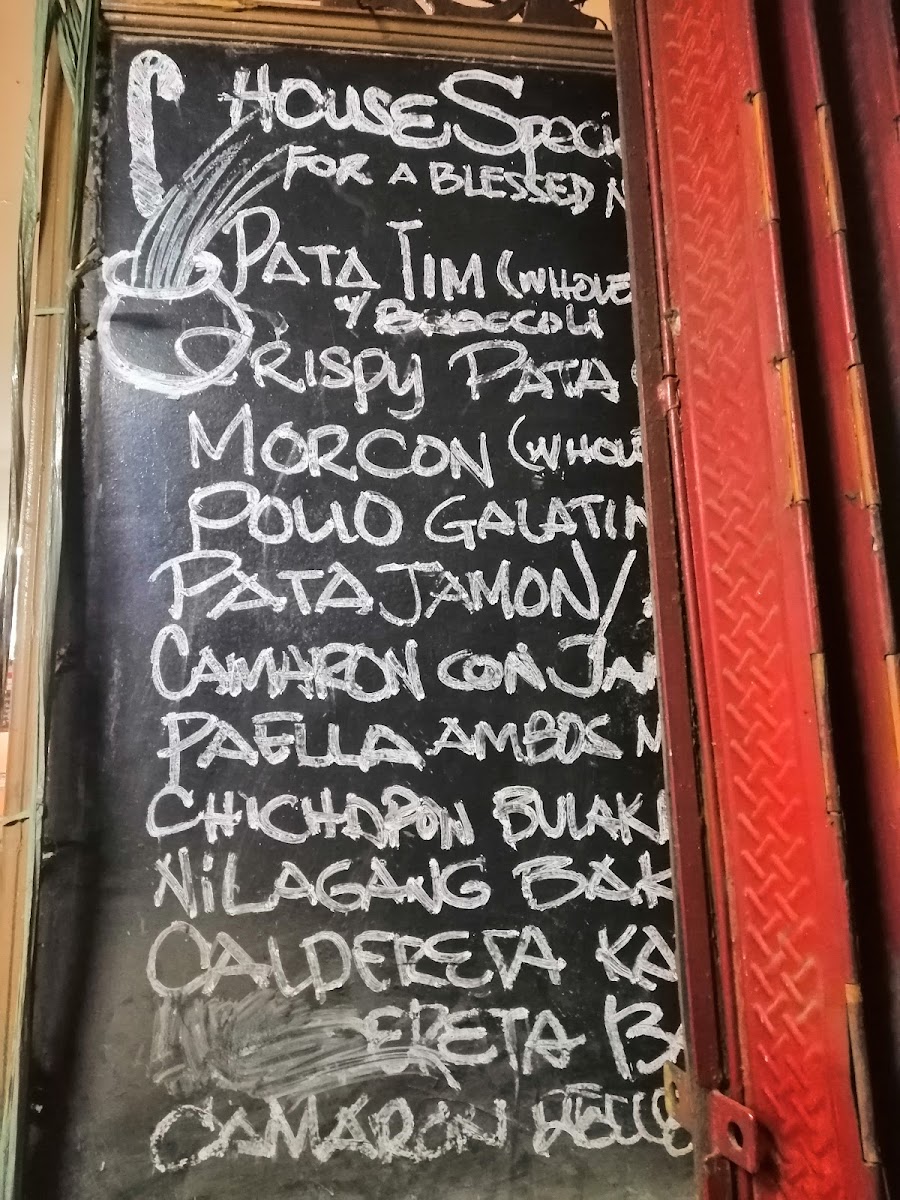 HOUSE Speci
FOR A BLESSED N
PATA TIM (WHOLE
W/ BROCCOLI
CRISPY PATA (
MORCON (WHOLE
POLLO GALATIN
PATA JAMON/
CAMARON CON JAM
PAELLA AMBOS M
CHICHARON BULAKL
NILAGANG BAK
CALDERETA KA
ERETA BA
CAMARON